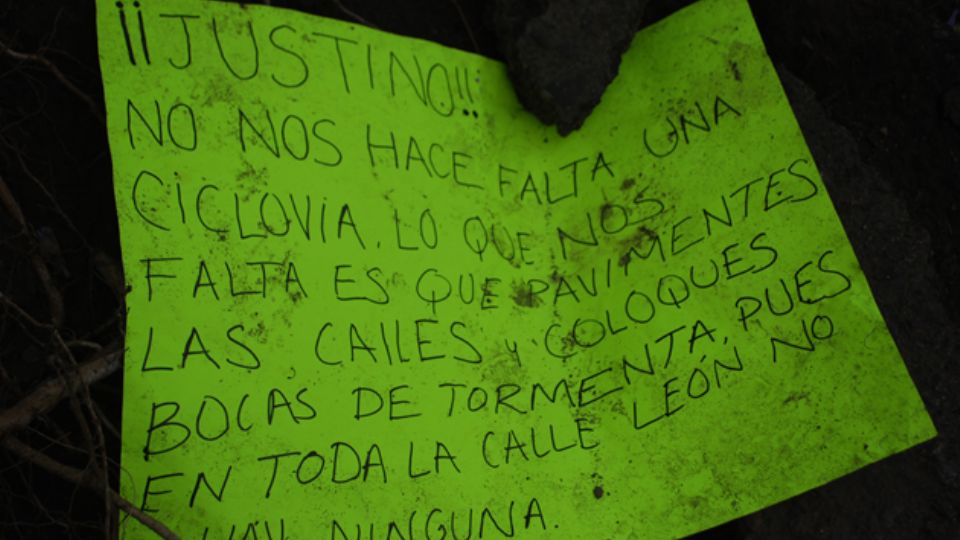 ¡¡JUSTINO!!
NO NOS HACE FALTA UNA
CICLOVIA, LO QUE NOS
FALTA ES QUE PAVIMENTES
LAS CALLES y COLOQUES
BOCAS DE TORMENTA, PUES
EN TODA LA CALLE LEÓN NO
HAY NINGUNA.